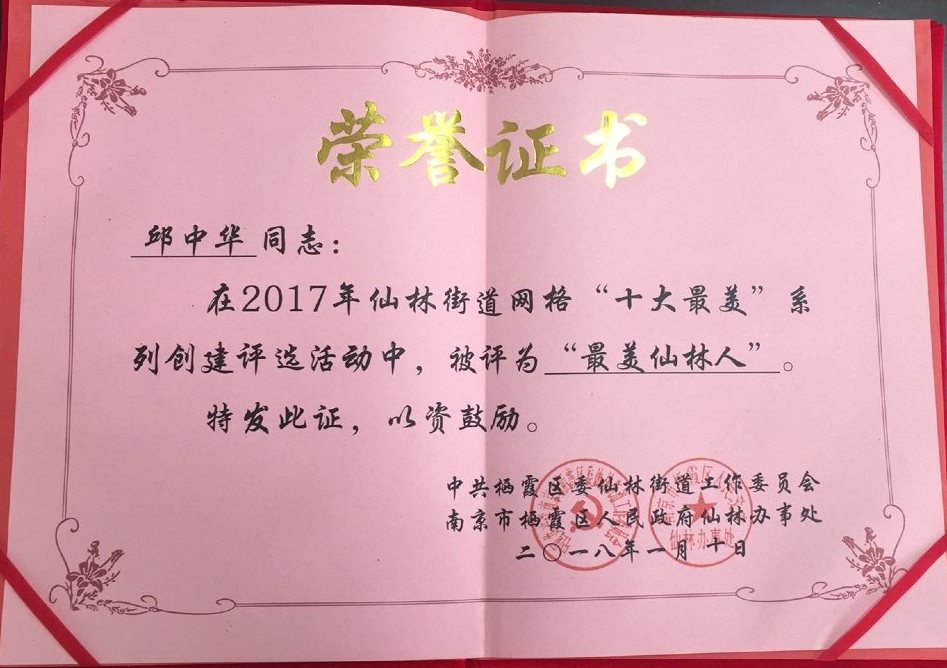 荣誉证书
邱中华 同志：
在2017年仙林街道网格“十大最美”系
列创建评选活动中，被评为“最美仙林人”。
特发此证，以资鼓励。
中共栖霞区委仙林街道工作委员会
南京市栖霞区人民政府仙林办事处
二〇一八年一月十日
仙林办事处